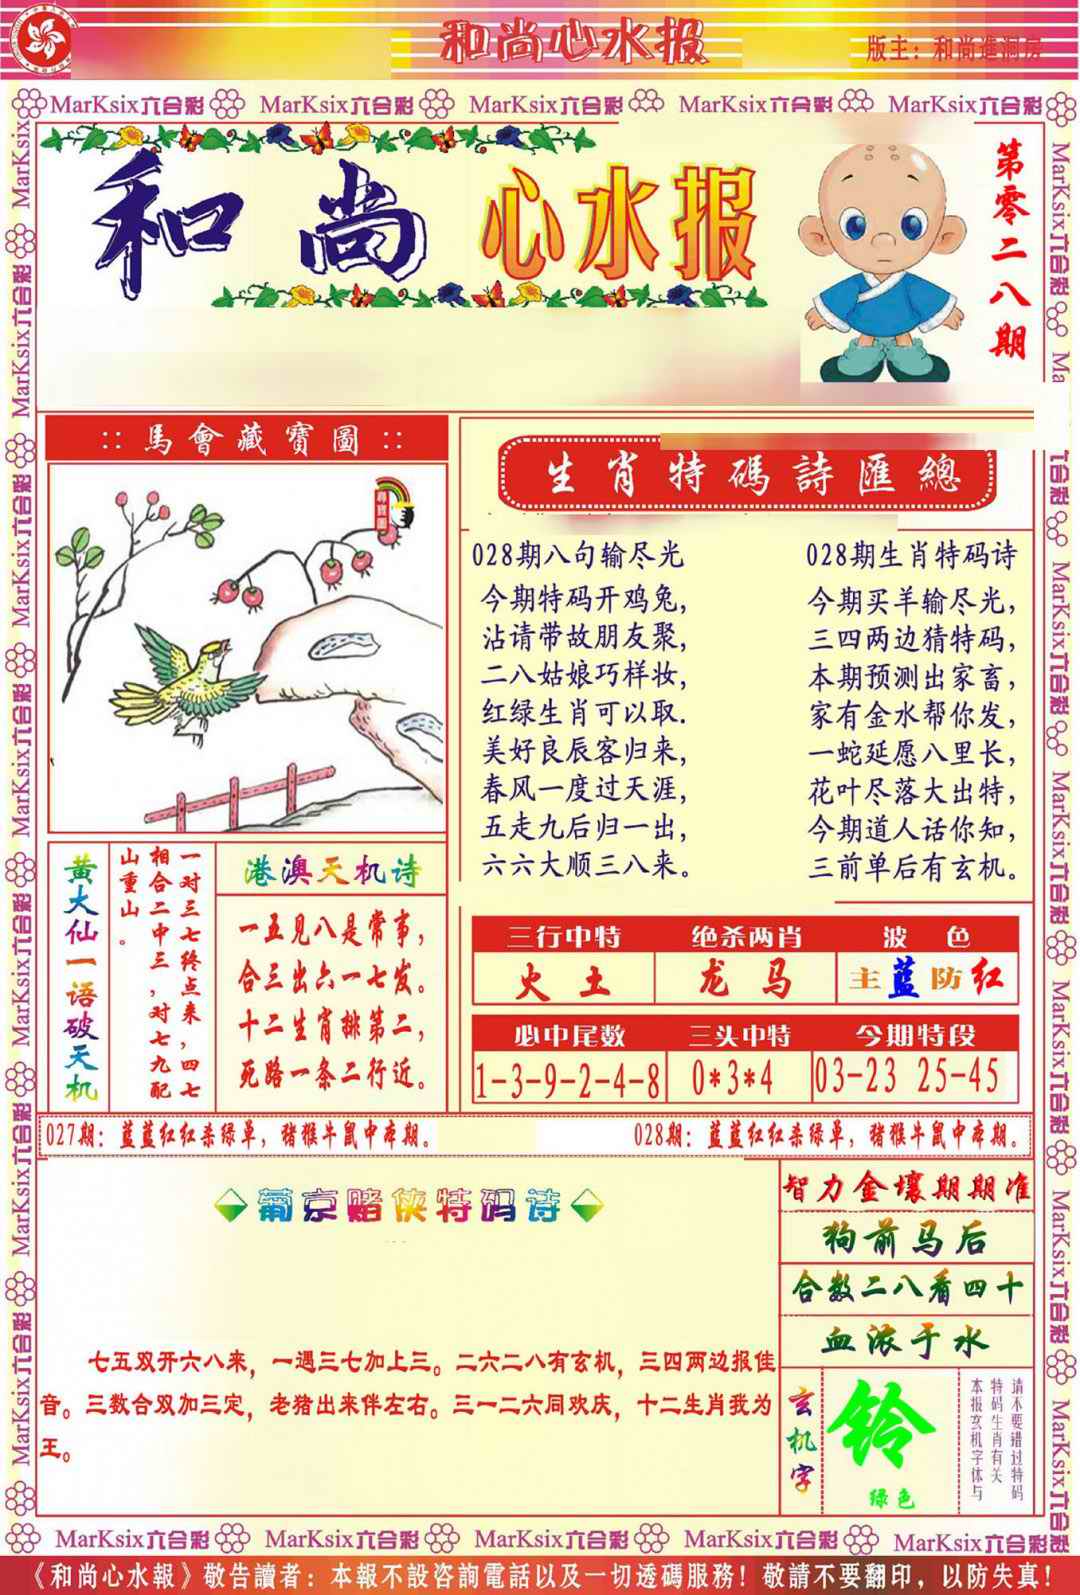 和尚心水报
版主：和尚進洞房
MarKsix六合彩 MarKsix六合彩 MarKsix六合彩 MarKsix六合彩 MarKsix六合彩
和尚心水报
第零二八期
:: 馬會藏寶圖 ::
尋寶圖
生肖特碼詩匯總
028期八句输尽光
今期特码开鸡兔,
沾请带故朋友聚,
二八姑娘巧样妆,
红绿生肖可以取.
美好良辰客归来,
春风一度过天涯,
五走九后归一出,
六六大顺三八来。
028期生肖特码诗
今期买羊输尽光,
三四两边猜特码,
本期预测出家畜,
家有金水帮你发,
一蛇延愿八里长,
花叶尽落大出特,
今期道人话你知,
三前单后有玄机。
黄大仙一语破天机
一对三七终点来,四七
相合二中三,对七九配
山重山。
港澳天机诗
一五见八是常事,
合三出六一七发。
十二生肖排第二,
死路一条二行近。
三行中特 绝杀两肖 波 色
火 土 龙 马 主蓝防红
必中尾数 三头中特 今期特段
1-3-9-2-4-8 0*3*4 03-23 25-45
027期：蓝蓝红红杀绿单，猪猴牛鼠中本期。
028期：蓝蓝红红杀绿单，猪猴牛鼠中本期。
葡京赌侠特码诗
七五双开六八来，一遇三七加上三。二六二八有玄机，三四两边报佳
音。三数合双加三定，老猪出来伴左右。三一二六同欢庆，十二生肖我为
王。
智力金壤期期准
狗前马后
合数二八看四十
血浓于水
玄机字
铃
绿色
请不要错过特码
特码生肖有关
本报玄机字体与
MarKsix六合彩 MarKsix六合彩 MarKsix六合彩 MarKsix六合彩 MarKsix六合彩
《和尚心水報》敬告讀者：本報不設咨詢電話以及一切透碼服務！敬請不要翻印，以防失真！